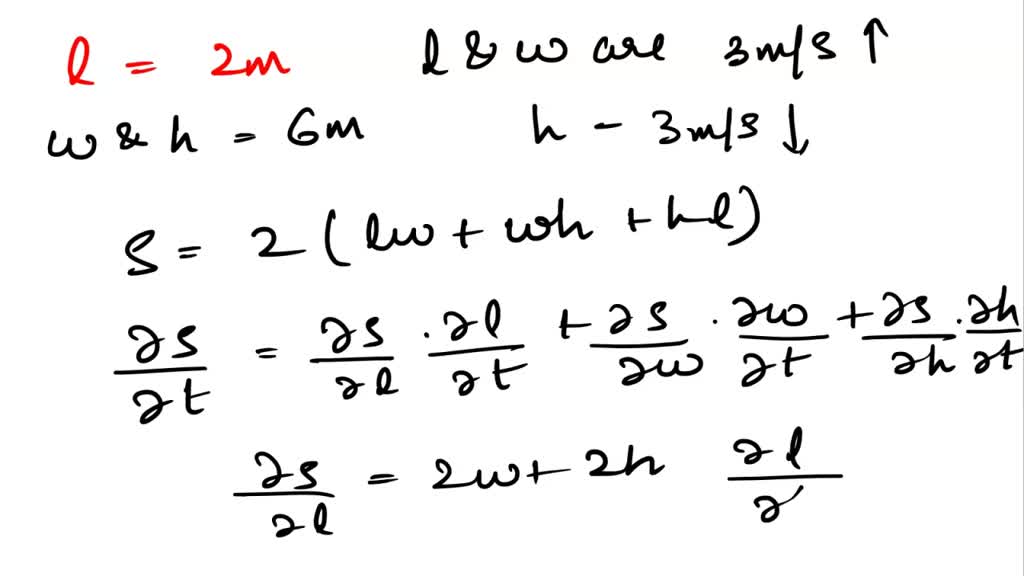 l = 2m l & w are 3m/s ↑
w & h = 6m h - 3m/s ↓
S = 2 (lw + wh + hl)
∂S/∂t = ∂S/∂l . ∂l/∂t + ∂S/∂w . ∂w/∂t + ∂S/∂h . ∂h/∂t
∂S/∂l = 2w + 2h ∂l/∂